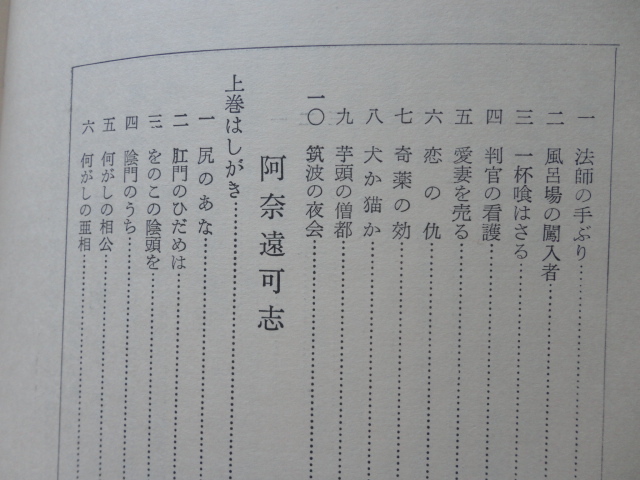 一 法師の手ぶり
二 風呂場の闖入者
三 一杯喰はさる
四 判官の看護
五 愛妻を売る
六 恋の仇
七 奇薬の効
八 犬か猫か
九 芋頭の僧都
一〇 筑波の夜会
阿奈遠可志
上巻はしがき
一 尻のあな
二 肛門のひだめは
三 をのこの陰頭を
四 陰門のうち
五 何がしの相公
六 何がしの亜相